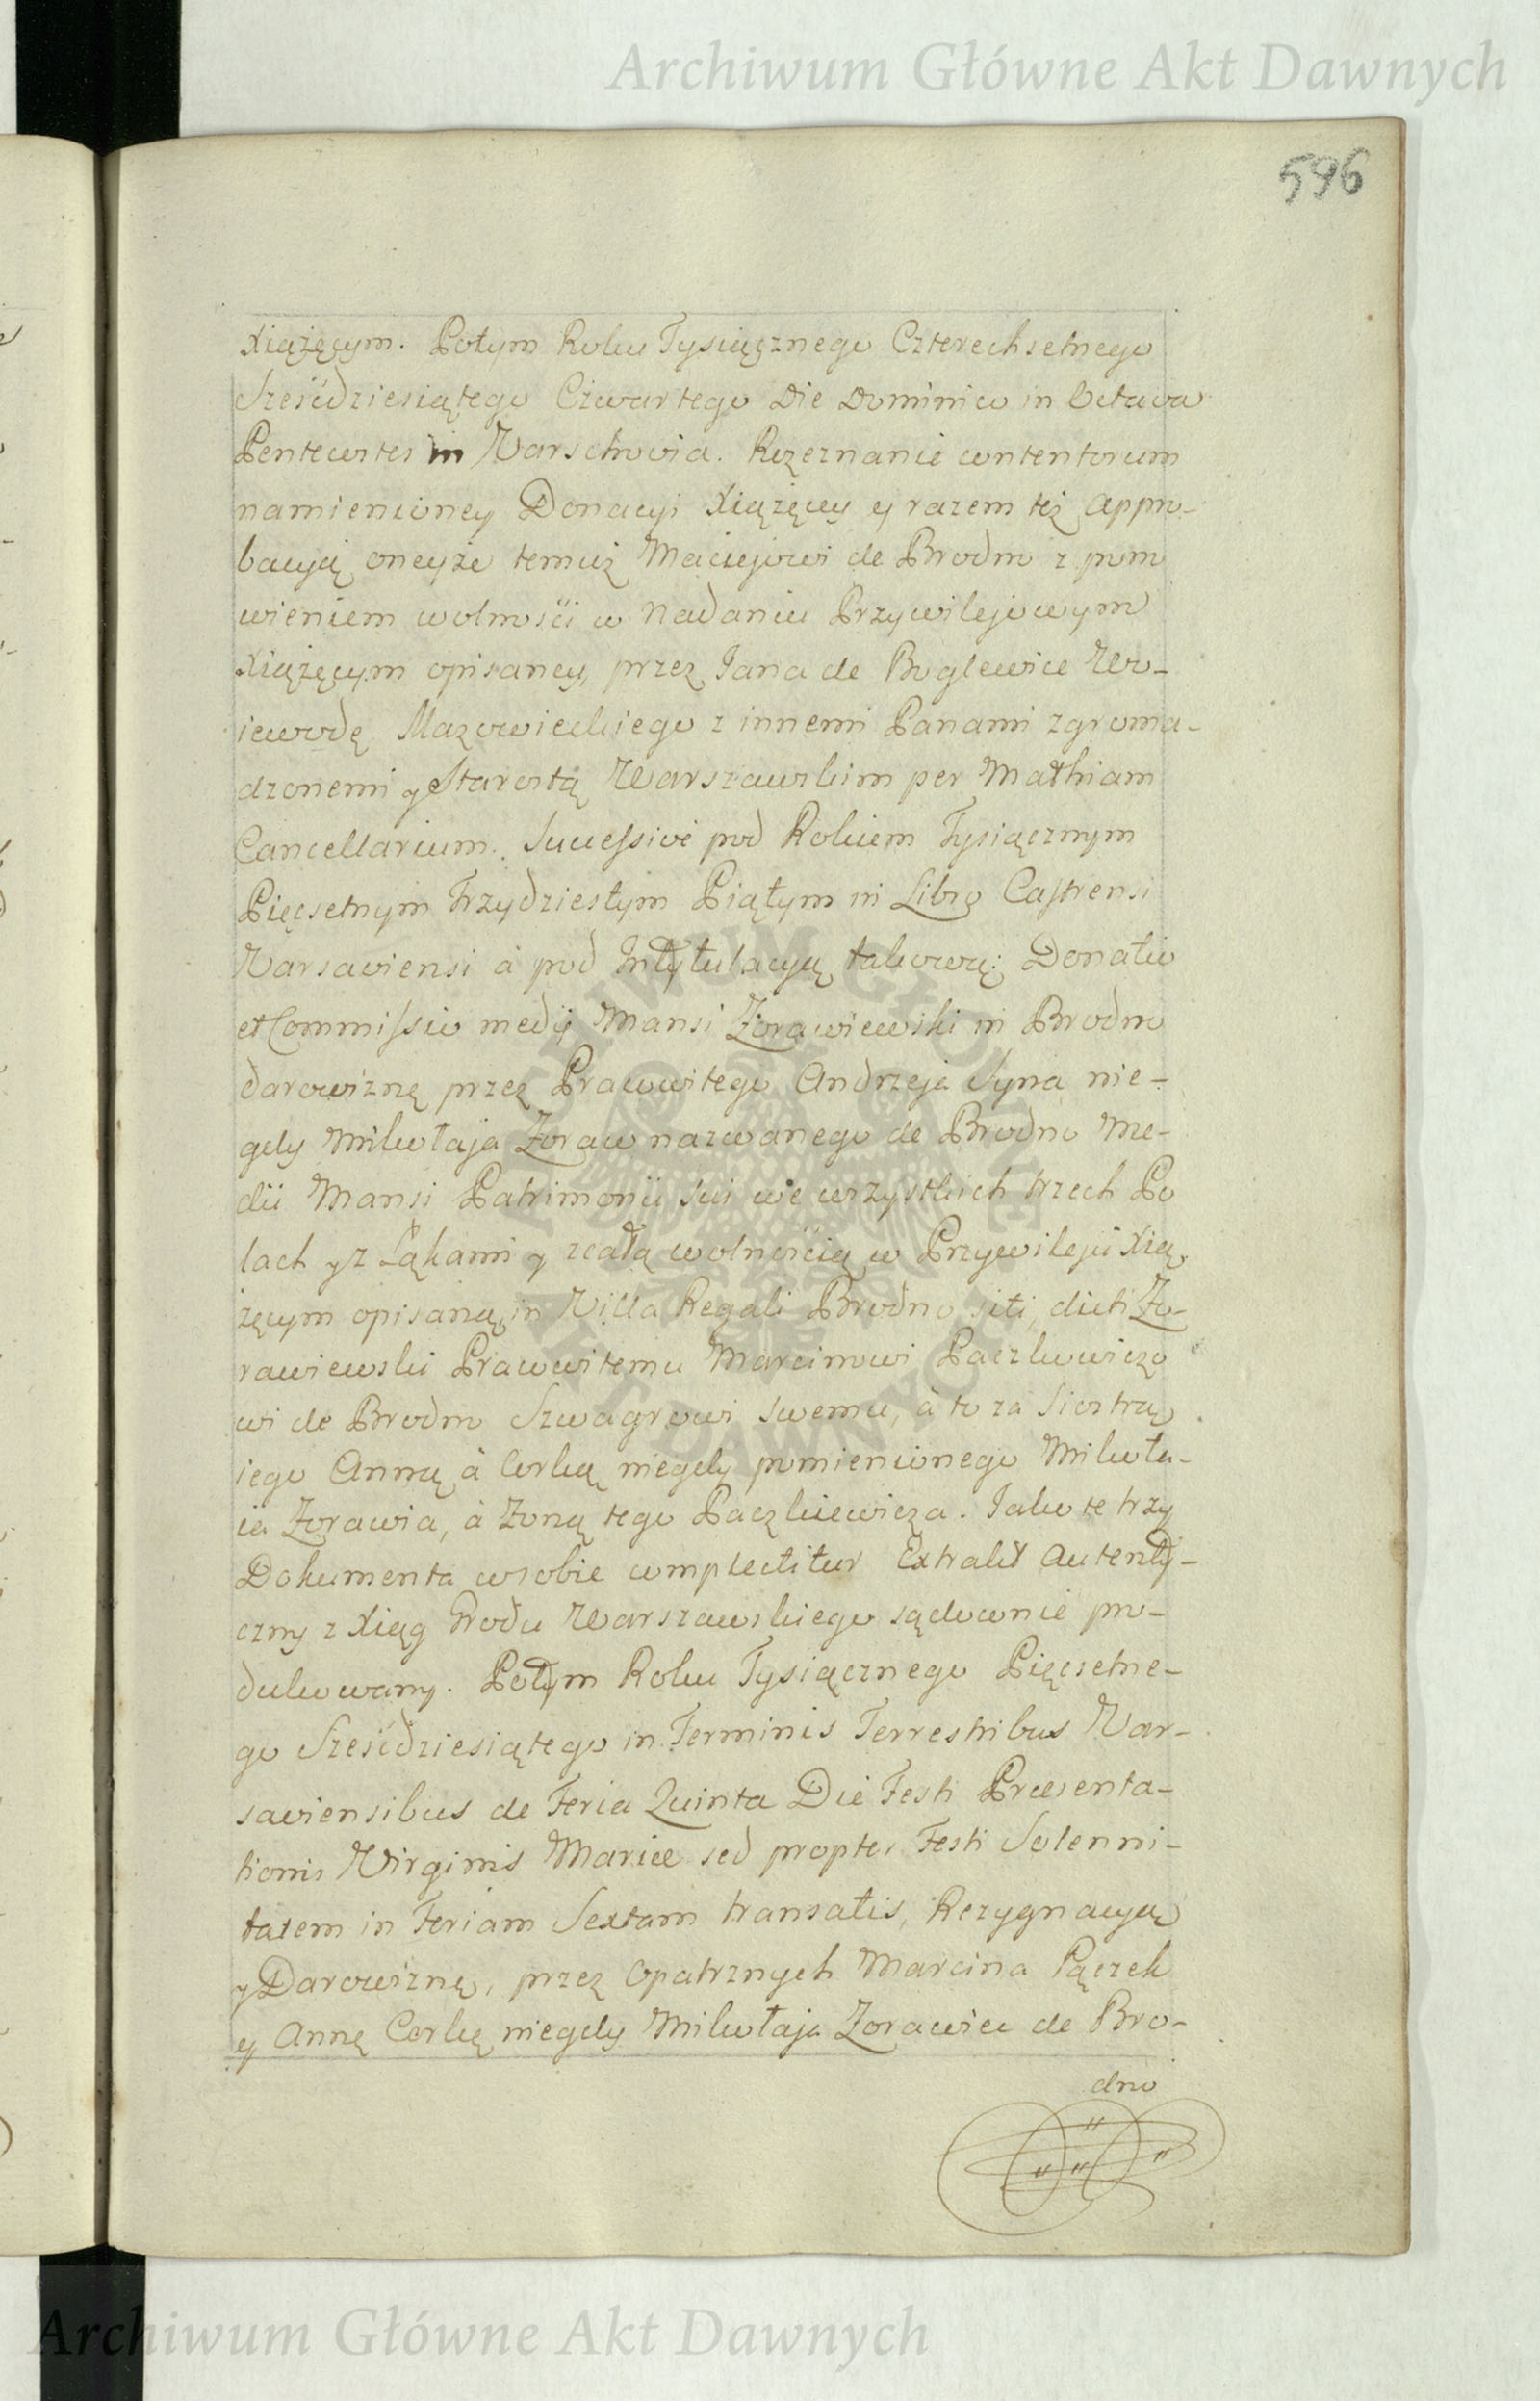 Archiwum Główne Akt Dawnych
596
Xiążęcym. Potym Roku Tysiącznego Czterechsetnego
Sześćdziesiątego Czwartego Die Dominico in Octava
Pentecostes in Warschovia. Rozeznanie contentorum
namienioney Donacyi Xiążęcey y razem też appro-
bacyą oneyże temuż Maciejowi de Brodno z pono
wieniem wolności w Nadaniu Przywilejowym
Xiążęcym opisaney, przez Jana de Boglewice Wo-
iewodę Mazowieckiego z innemi Panami zgroma-
dzonemi y Starostą Warszawskim per Mathiam
Cancellarium. Sucessive pod Rokiem Tysiącznym
Pięcsetnym Trzydziestym Piątym in Libro Castrensi
Varsaviensi à pod Intytulacyą takową: Donatio
et Commissio medij Mansi Zorawiewski in Brodno
darowiznę przez Pracowitego Andrzeja Syna nie-
gdy Mikołaja Zoraw nazwanego de Brodno Me-
dii Mansi Patrimonii sui we wszystkich trzech Po
lach y z Łąkami y zcałą wolnością w Przywileju Xią
żęcym opisaną, in Villa Regali Brodno siti, dicti Zo-
rawiewski Pracowitemu Marcinowi Paczkowiczo
wi de Brodno Szwagrowi swemu, à to za Siostrą
iego Anną à Corką niegdy pomienionego Mikoła-
ia Zorawia, à Zoną tego Paczkiewicza. Jako te trzy
Dokumenta wsobie complectitur Extrakt Autenty-
czny z Xiąg Grodu Warszawskiego sądownie pro-
dukowany. Potym Roku Tysiącznego Pięcsetne-
go Sześćdziesiątego in Terminis Terrestribus Var-
saviensibus de Feria Quinta Die Festi Præsenta-
tionis Virginis Mariæ sed propter Festi Solenni-
tatem in Feriam Sextam transatis, Rezygnacyą
y Darowiznę, przez Opatrznych Marcina Pączek
y Annę Corkę niegdy Mikołaja Zorawiec de Bro-
dno
Archiwum Główne Akt Dawnych